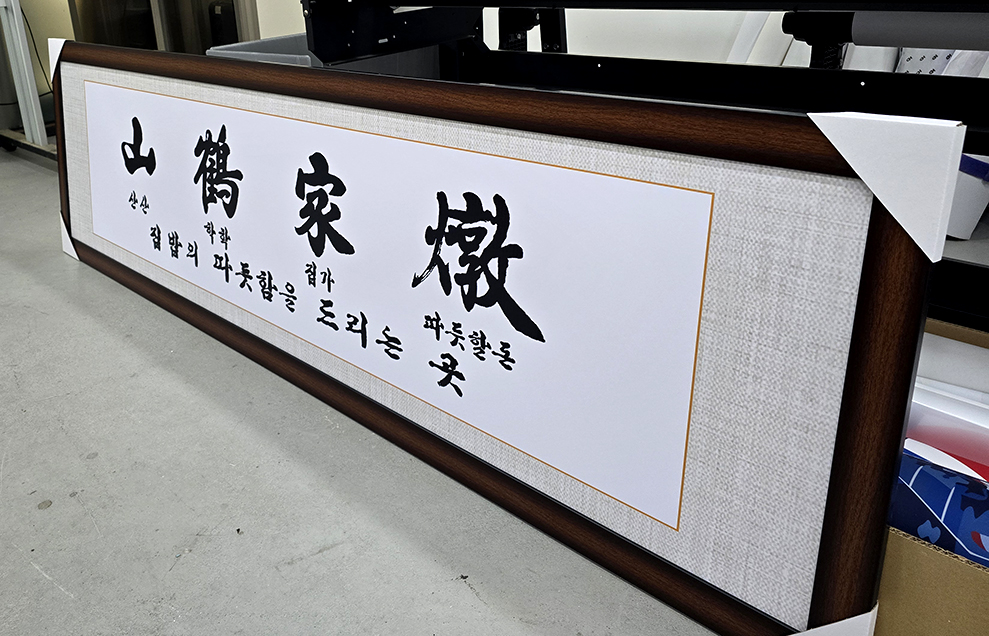 山 鶴 家 燉
산산 학화 집가 따뜻할돈
집밥의 따뜻함을 드리는 곳